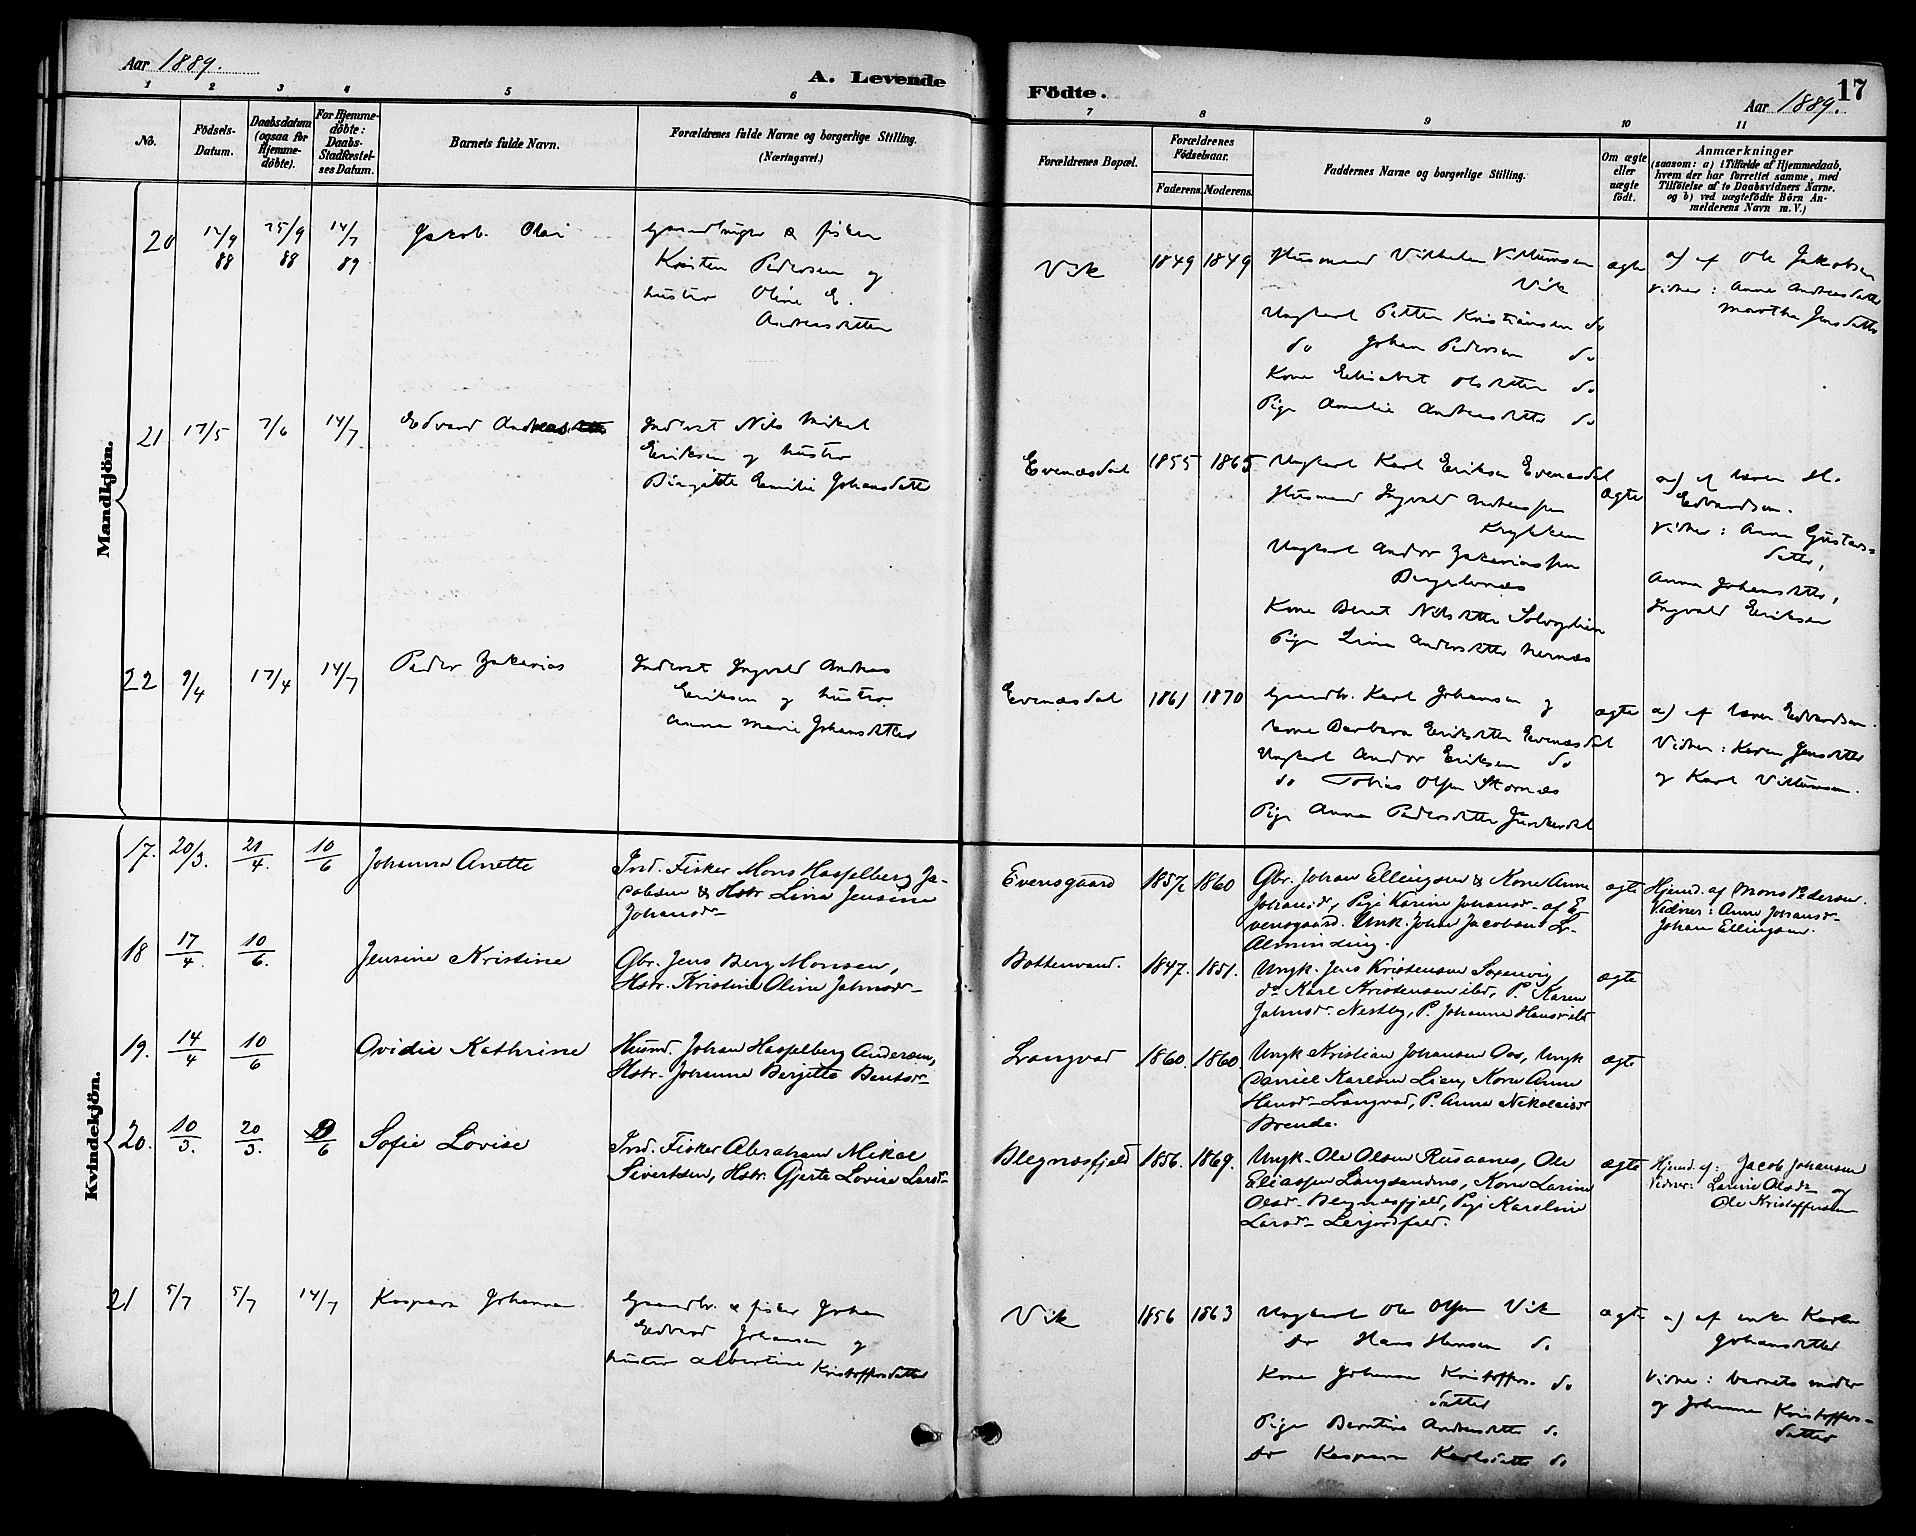 Aar 1889.
A. Levende
Födte.
17
Aar 1889.
1 2 3 4 5 6 7 8 9 10 11
No.
Födsels-
Datum.
Daabsdatum
(ogsaa for
Hjemme-
döbte).
For Hjemme-
döbte:
Daabs-
Stadfæstel-
ses Datum.
Barnets fulde Navn.
Forældrenes fulde Navne og borgerlige Stilling.
(Næringsvei.)
Forældrenes Bopæl.
Forældrenes
Födselsaar.
Faderens. Moderens.
Faddernes Navne og borgerlige Stilling.
Om ægte
eller
uægte
födt.
Anmærkninger
(saasom: a) i Tilfælde af Hjemmedaab,
hvem der har forrettet samme, med
Tilföielse af to Daabsvidners Navne.
og b) ved uægtefödte Börn An-
melderens Navn m. V.)
Mandkjön.
20 12/9 88 25/9 88 14/7 89
Jakob Olai
fisker
Kristen Pedersen og
hustro Oline E.
Andreasdatter
Vik
1849 1849
Husmand Vilhelm Villumsen
Vik
Ungkarl Petter Kristiansen do
do Johan Pedersen do
Kone Elisabet Olsdatter do
Pige Amalie Andreasdatter do
ægte
a) af Ole Jakobsen
Vidner: Anne Andreasdatter
Martha Jensdatter
21 17/5 7/6 14/7
Edvard Andreas
Inderst Nils Mikal
Eriksen og hustro
Birgitte Emilie Johansdatter
Evenæsdal
1855 1865
Ungkarl Karl Eriksen Evenæsdal
Husmand Ingvald Andreassen
Krykken
Ungkarl Andor Zakariassen
Kone Beret Nilsdatter
Pige Lina Andersdatter Nernæs
ægte
a) af lærer H.
Edvardsen.
Vidner: Anna Gustavs-
datter,
Anna Johansdatter,
Ingvald Eriksen
22 9/4 17/4 14/7
Peder Zakarias
Inderst Ingvald Andreas
Eriksen og hustro
Anna Marie Johansdatter
Evenæsdal
1861 1870
Gaardbr. Karl Johansen og
kone Barbara Eriksdatter Evenæsdal
Ungkarl Andor Eriksen do
do Tobias Olsen Stornæs
Pige Anna Pedersdatter Junkerdal
ægte
a) af lærer Edvardsen.
Vidner: Karen Jensdatter
og Karl Villumsen.
Kvindekjön.
17. 20/3. 21/4. 10/6
Johanna Anette
Ind. Fisker Mons Hasselberg Ja-
cobsen & Hstr. Lina Jensine
Johansd-
Evensgaard
1857 1860
Gbr. Johan Ellingsen & Kone Anne
Johansd, Pige Karine Johansd- af E-
vensgaard. Unk. Johan Jacobsen
Alminding.
ægte
Hjemd. af Mons Pedersen.
Vidner: Anne Johansd-
Johan Ellingsen.
18 17/4. 10/6.
Jensine Kristine
Gbr. Jens Berg Monsen,
Hstr. Kristine Oline Jakobsd-
Bottenvand.
1847. 1851.
Ungk. Jens Kristensen Saxenvig,
do Karl Kristensen ibd, P. Karen
Nestby, P. Johanna Hansd ibd
ægte
19. 14/4 10/6
Ovidie Kathrine
Husmd. Johan Hasselberg Andersen,
Hstr. Johanna Bergitte Bentsd-
Langvad
1860. 1860.
Ungk Kristian Johansen Oos, Ungk
Daniel Karlsen Lien, Kone Anne
Hansd- Langvad, P. Anne Nikolaisd-
Brende.
ægte
20. 10/3. 20/3. 9/6
Sofie Lovise
Ind. Fisker Abraham Mikal
Sivertsen, Hstr. Gjerte Lovise Larsd-
Blegnæsfjeld
1856. 1869.
Ungk- Ole Olsen Rusaanes, Ole
Eliassen Langsandnes, Kone Larine
Olsd- Blegnæsfjeld, Pige Karoline
Larsd-
ægte
Hjemd. af: Jacob Johansen
Vidner: Larine Olsd- og
Ole Kristoffersen
21 5/7 5/7 14/7
Kaspara Johanna
Gaardbr. & fisker Johan
Edvard Johansen og
hustro Albertine Kristoffersdatter
Vik
1856 1863
Ungkarl Ole Olsen Vik
do Hans Hansen do
Kone Johanna Kristoffers- do
datter
Pige Berntine Andreasdatter do
do Kaspara Karlsdatter do
ægte
a) af enke Karen
Johansdatter
Vidner: barnets moder
og Johanna Kristoffers-
datter